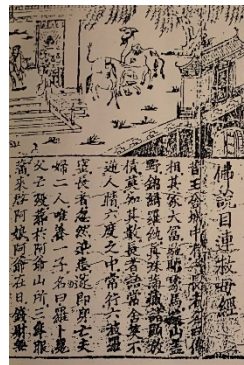 佛說目連救母經
昔王舍城中有一長者名曰傅
相其家大富駞驢象馬遍山盖
野錦綺羅紈真珠滿藏
債莫知其數長者語常含笑不
逆人情六度之中常行六波羅
蜜長者忽然染患遂即身亡夫
婦二人唯養一子名曰羅卜見
父亡殁葬於阿爺山所三年服
滿來啓阿娘阿爺在日錢財無